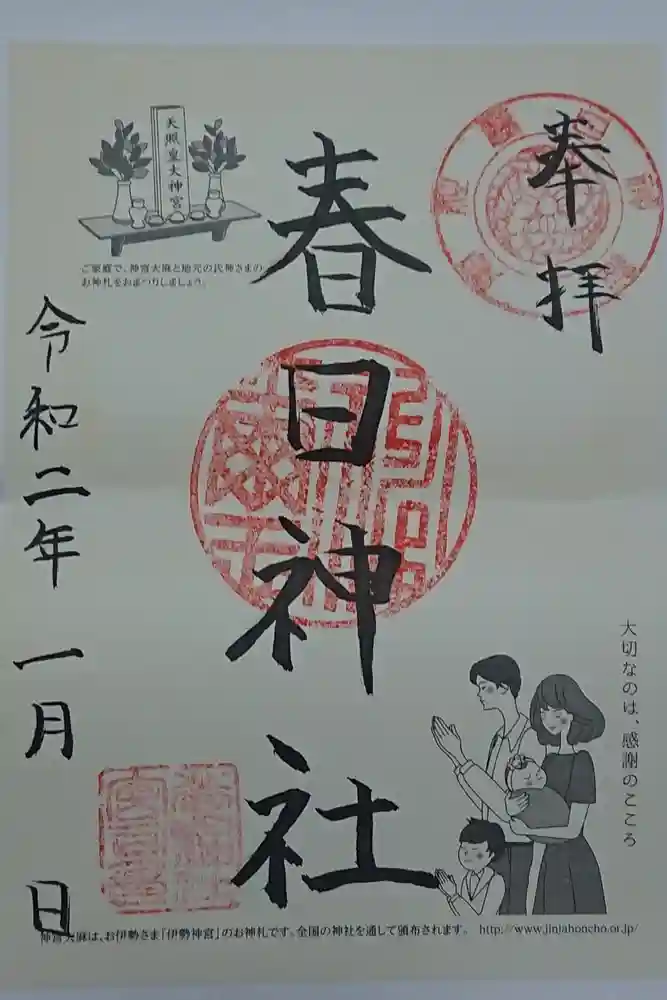 奉拝
春日神社
令和二年 一月 日
天照皇大神宮
ご家庭で、神宮大麻と地元の氏神さまの
お神札をおまつりしましょう。
大切なのは、感謝のこころ
神宮大麻は、お伊勢さま「伊勢神宮」のお神札です。全国の神社を通して頒布されます。 http://www.jinjahoncho.or.jp/